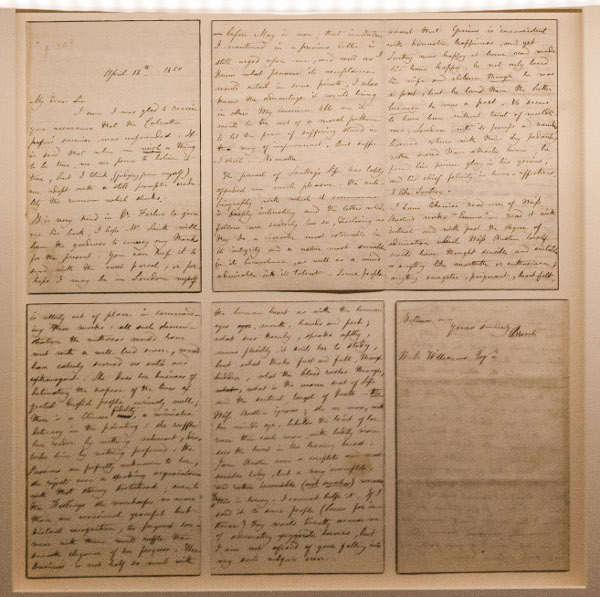 April 12th 1850
My dear Sir
I own I was glad to receive
your assurance that the Calcutta
paper's surmise was unfounded. It
is said that when we wish a thing
to be true, we are prone to believe it
true, but I think (judging from myself)
we adopt with a still prompter credu-
lity the rumour which shocks.
It is very kind in Dr. Forbes to give
me his book, I hope Mr. Smith will
have the goodness to convey my thanks
for the present. You can keep it to
send with the next parcel, or per-
haps I may be in London myself
before May is over; that invitation
I mentioned in a previous letter is
still urged upon me, and well as I
know what penance its acceptance
would entail in some points, I also
know the advantage it would bring
in others. My conscience tells me it
would be the act of a moral poltroon
to let the fear of suffering stand in
the way of improvement. But suffer
I shall. No matter.
The perusal of Southey's Life has lately
afforded me much pleasure; the auto-
biography with which it commences
is deeply interesting and the letters which
follow are scarcely less so, disclosing as
they do a character most estimable in
its integrity and a nature most amiable
in its benevolence, as well as a mind
admirable in its talent. Some people
assert that Genius is inconsistent
with domestic happiness, and yet
Southey was happy at home and made
his home happy; he not only loved
his wife and children though he was
a poet, but he loved them the better
because he was a poet. He seems
to have been without taint of worldli-
ness; London, with its pomps and vanities,
learned coteries with their dry pedantry
rather scared than attracted him; he
found his prime glory in his genius,
and his chief felicity in home-affections.
I like Southey.
I have likewise read one of Miss
Austen's works "Emma" — read it with
interest and with just the degree of
admiration which Miss Austen herself
would have thought sensible and suitable
anything like warmth or enthusiasm;
anything energetic, poignant, heart-felt,
is utterly out of place in commend-
ing these works: all such demon-
stration the authoress would have
met with a well-bred sneer, would
have calmly scorned as outré and
extravagant. She does her business of
delineating the surface of the lives of
genteel English people curiously well;
there is a Chinese fidelity, a miniature
delicacy in the painting: she ruffles
her reader by nothing vehement, dis-
turbs him by nothing profound: the
Passions are perfectly unknown to her;
she rejects even a speaking acquaintance
with that stormy Sisterhood; even to
the Feelings she vouchsafes no more
than an occasional graceful but
distant recognition; too frequent con-
verse with them would ruffle the
smooth elegance of her progress. Her
business is not half so much with
the human heart as with the human
eyes, mouth, hands and feet;
what sees keenly, speaks aptly,
moves flexibly, it suits her to study,
but what throbs fast and full, though
hidden, what the blood rushes through,
what is the unseen seat of Life
and the sentient target of Death — this
Miss Austen ignores; she no more, with
her mind's eye, beholds the heart of her
race than each man, with bodily vision
sees the heart in his heaving breast.
Jane Austen was a complete and most
sensible lady, but a very incomplete,
and rather insensible (not senseless) woman,
if this is heresy — I cannot help it. If I
said it to some people (Lewes for in-
stance) they would directly accuse me
of advocating exaggerated heroics, but
I am not afraid of your falling into
any such vulgar error.
Believe me
Yours sincerely
CBrontë
W. S. Williams Esqr.